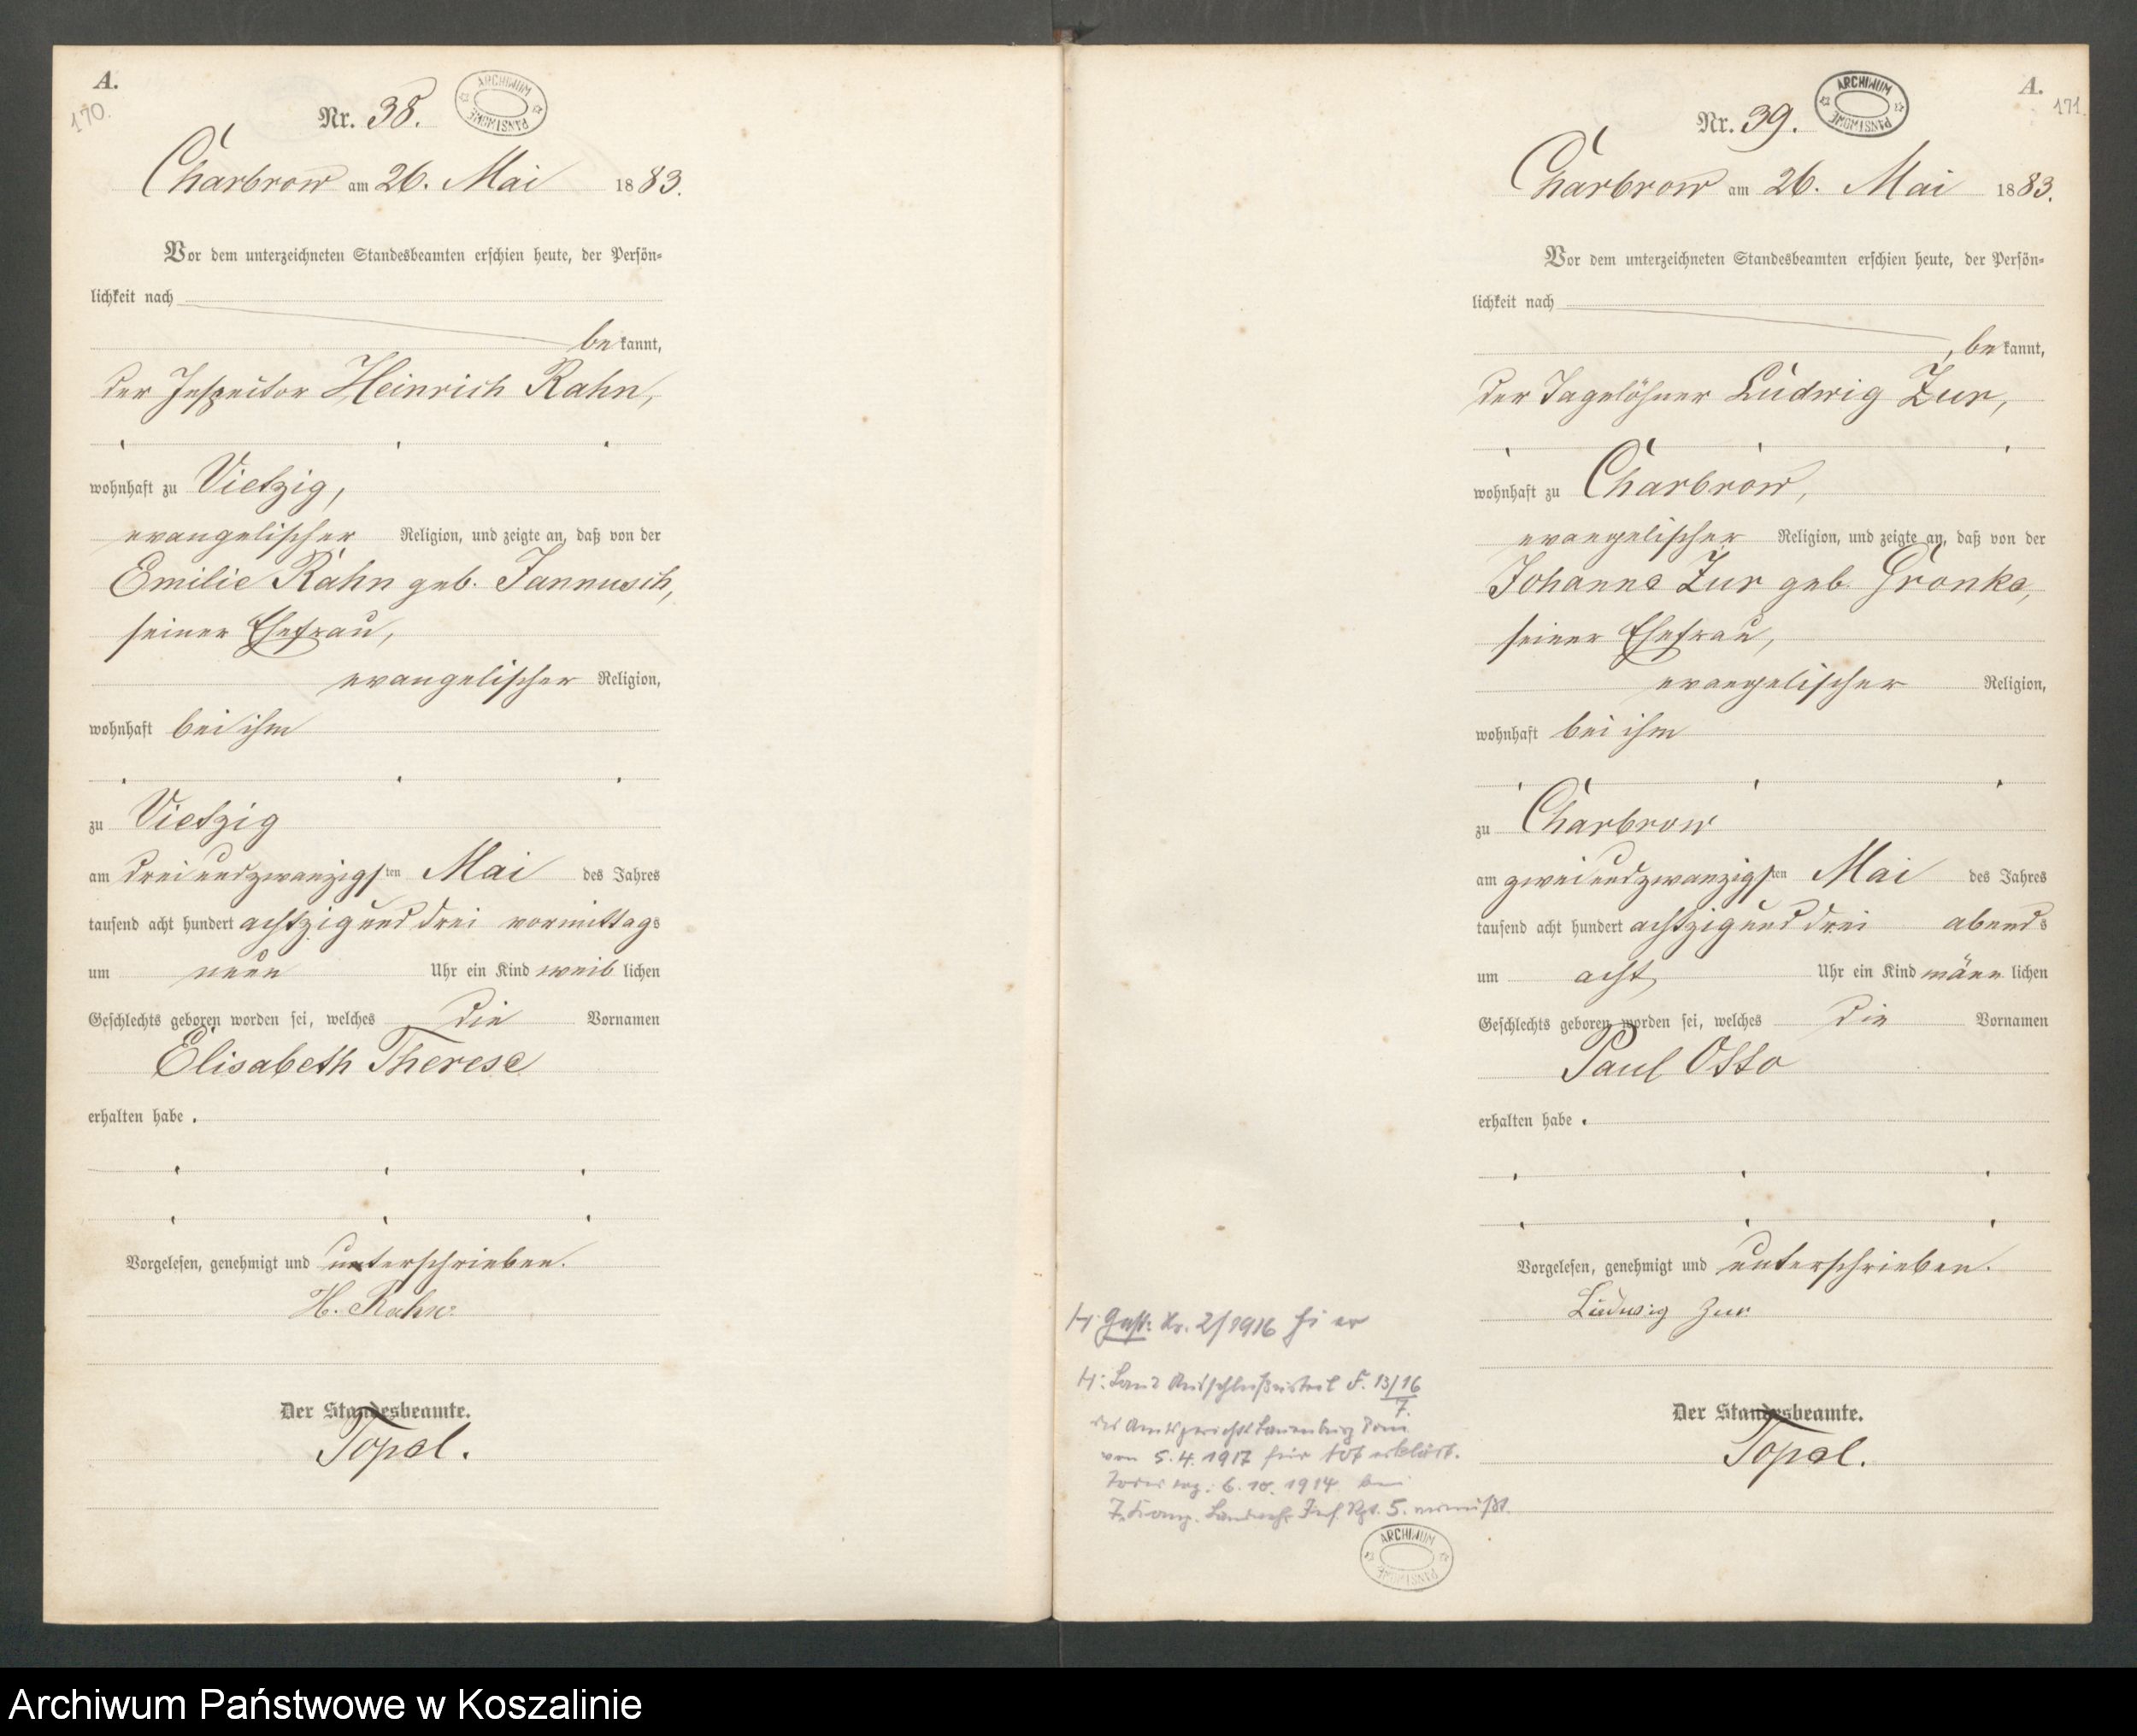 A.
170.
Nr. 38.
ARCHIWUM PAŃSTWOWE
Charbrow am 26. Mai 1883.
Vor dem unterzeichneten Standesbeamten erschien heute, der Persön-
lichkeit nach
bekannt,
der Inspector Heinrich Rahn,
wohnhaft zu Vietzig,
evangelischer Religion, und zeigte an, daß von der
Emilie Rahn geb. Jannusch,
seiner Ehefrau,
evangelischer Religion,
wohnhaft bei ihm
zu Vietzig
am dreiundzwanzigsten Mai des Jahres
tausend acht hundert achtzig und drei vormittags
um neun Uhr ein Kind weiblichen
Geschlechts geboren worden sei, welches die Vornamen
Elisabeth Therese
erhalten habe.
Vorgelesen, genehmigt und unterschrieben.
H. Rahn.
Der Standesbeamte.
Topel.
A.
171.
Nr. 39.
ARCHIWUM PAŃSTWOWE
Charbrow am 26. Mai 1883.
Vor dem unterzeichneten Standesbeamten erschien heute, der Persön-
lichkeit nach
, bekannt,
der Tagelöhner Ludwig Zur,
wohnhaft zu Charbrow,
evangelischer Religion, und zeigte an, daß von der
Johanne Zur geb. Gronke,
seiner Ehefrau,
evangelischer Religion,
wohnhaft bei ihm
zu Charbrow
am zweiundzwanzigsten Mai des Jahres
tausend acht hundert achtzig und drei abends
um acht Uhr ein Kind männlichen
Geschlechts geboren worden sei, welches die Vornamen
Paul Otto
erhalten habe.
Vorgelesen, genehmigt und unterschrieben.
Ludwig Zur.
Der Standesbeamte.
Topel.
H. Nr. 2/1916
H: Laut Ausschlußurteil F. 13/16
7.
des Amtsgerichts Lauenburg Pom
vom 5.4.1917 für tot erklärt.
Todestag: 6.10.1914. bei
7. Komp. Landwehr Inf. Rgt. 5. vermißt.
ARCHIWUM PAŃSTWOWE
Archiwum Państwowe w Koszalinie